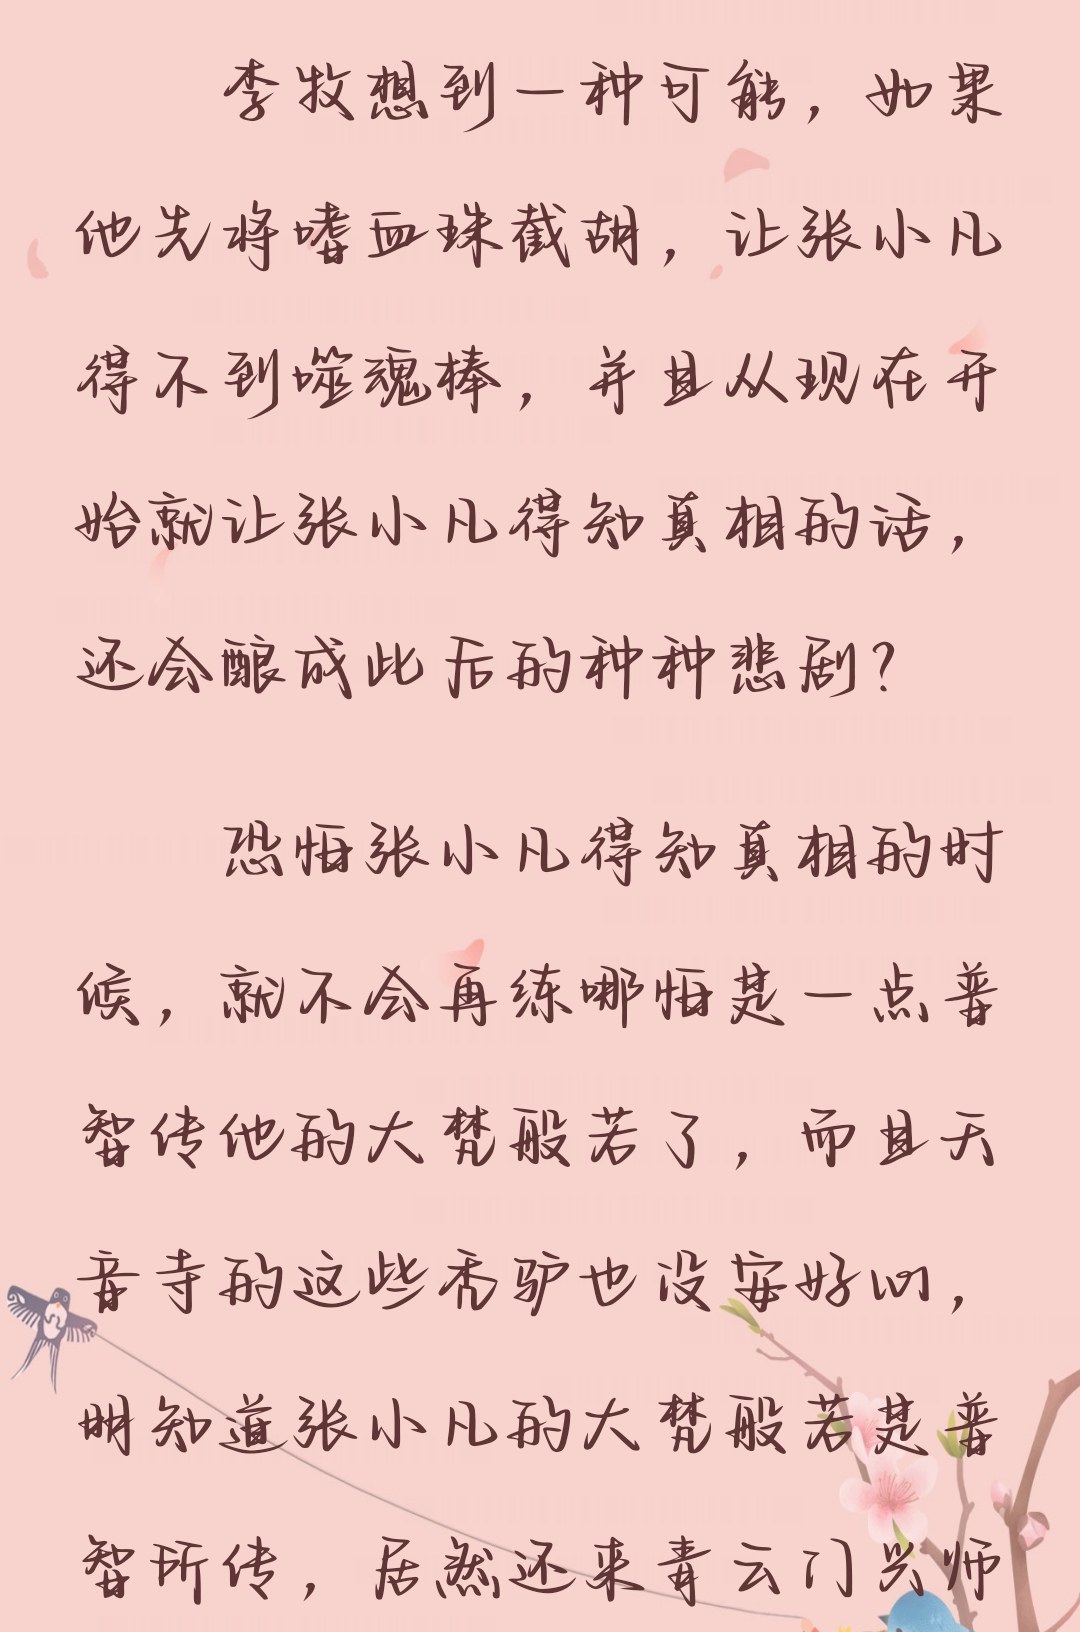 李牧想到一种可能，如果
他先将嗜血珠截胡，让张小凡
得不到噬魂棒，并且从现在开
始就让张小凡得知真相的话，
还会酿成此后的种种悲剧？
恐怕张小凡得知真相的时
候，就不会再练哪怕是一点普
智传他的大梵般若了，而且天
音寺的这些秃驴也没安好心，
明知道张小凡的大梵般若是普
智所传，居然还来青云门兴师